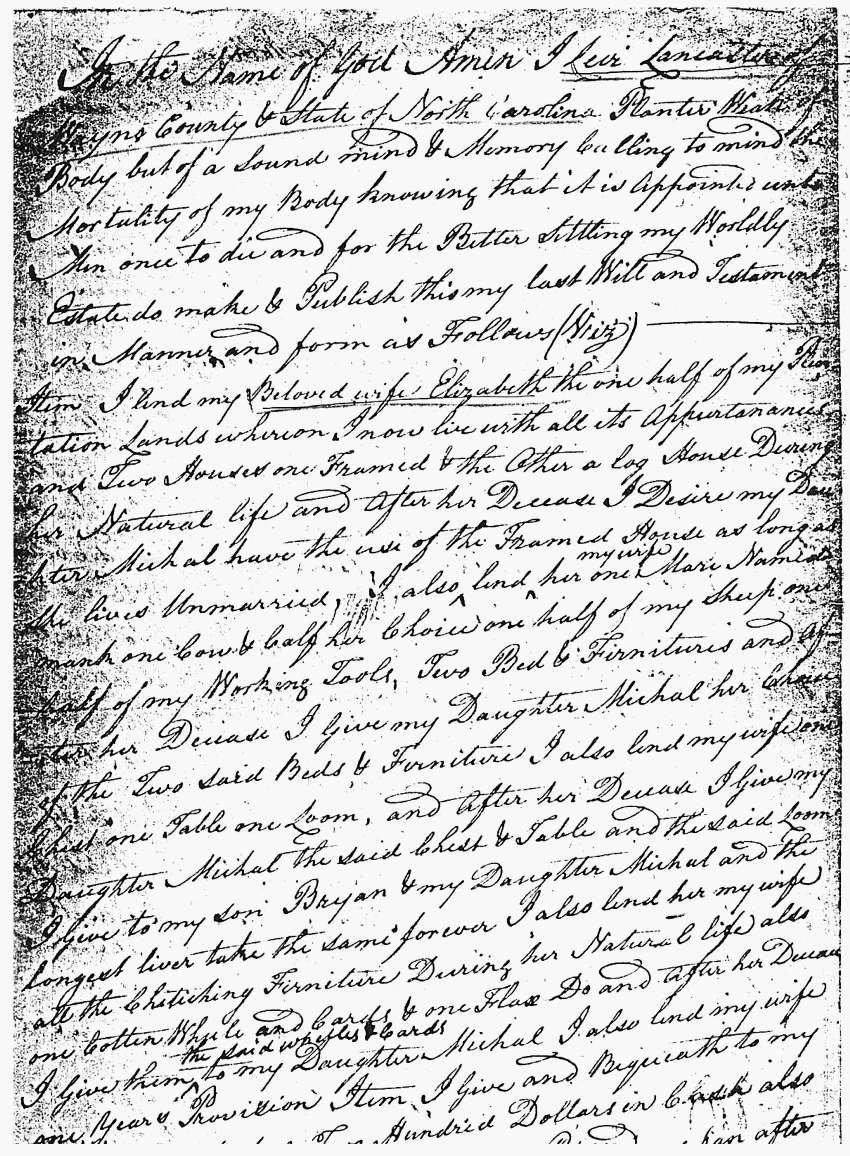 In the Name of God Amen I Levi Lancaster of
Wayne County & State of North Carolina Planter Weak of
Body but of a Sound mind & Memory Calling to mind the
Mortality of my Body knowing that it is Appointed unto
Men once to die and for the Better Settling my Worldly
Estate do make & Publish this my last Will and Testament
in Manner and form as Follows (Viz)
Item I lend my Beloved wife Elizabeth the one half of my Plan
tation Lands whereon I now live with all its Appurtanances
and Two Houses one Framed & the Other a log House During
her Natural life and After her Decease I Desire my Dau
hter Michal have the use of the Framed House as long as
She lives Unmarried, I also lend her my wife one Mare Named
one Cow & Calf her Choice one half of my Sheep one
half of my Working Tools, Two Bed & Firnitures and Af
ter her Decease I Give my Daughter Michal her Choice
of the Two said Beds & Furniture I also lend my wife one
Chest one Table one Loom, and After her Decease I Give my
Daughter Michal the said Chest & Table and the said Loom
I Give to my son Bryan & my Daughter Michal and the
longest liver take the same forever I also lend her my wife
all the Chitiching Firniture During her Natural life also
one Cotten Whele and Cards & one Flax Do and After her Decease
I Give them the said wheeles & Cards to my Daughter Michal I also lend my wife
one Years Provision Item I Give and Bequeath to my
Two Hundred Dollars in Cash also
after